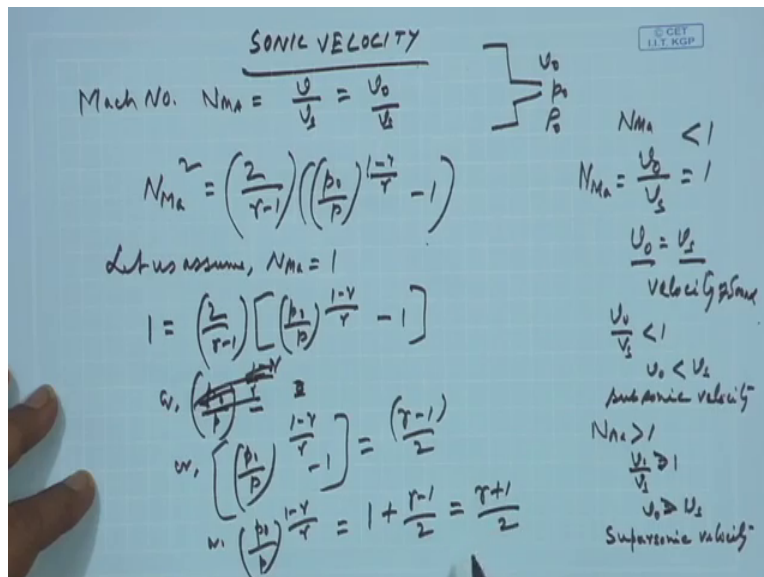 SONIC VELOCITY
© CET
I.I.T. KGP
Mach No. N_Ma = v/v_s = v_0/v_s
v_0
p_0
ρ_0
N_Ma^2 = (2/(γ-1)) ((p_0/p)^((1-γ)/γ) - 1)
Let us assume, N_Ma = 1
1 = (2/(γ-1)) [(p_0/p)^((1-γ)/γ) - 1]
or,
or, [(p_0/p)^((1-γ)/γ) - 1] = (γ-1)/2
or, (p_0/p)^((1-γ)/γ) = 1 + (γ-1)/2 = (γ+1)/2
N_Ma < 1
N_Ma = v_0/v_s = 1
v_0 = v_s
velocity of sound
v_0/v_s < 1
v_0 < v_s
subsonic velocity
N_Ma > 1
v_0/v_s > 1
v_0 > v_s
Supersonic velocity